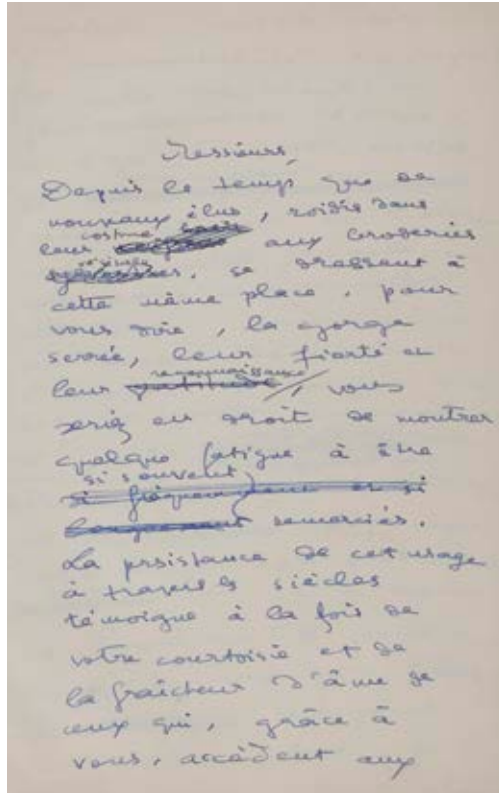 Messieurs,
Depuis le temps que de
nouveaux élus, roidis dans
costume
leur aux broderies
se dressent à
cette même place, pour
vous dire, la gorge
serrée, leur fierté et
reconnaissance
leur gratitude, vous
seriez en droit de montrer
quelque fatigue à être
si souvent
si fréquemment et si
longuement remerciés.
La persistance de cet usage
à travers les siècles
témoigne à la fois de
votre courtoisie et de
la fraîcheur d'âme de
ceux qui, grâce à
vous, accèdent aux